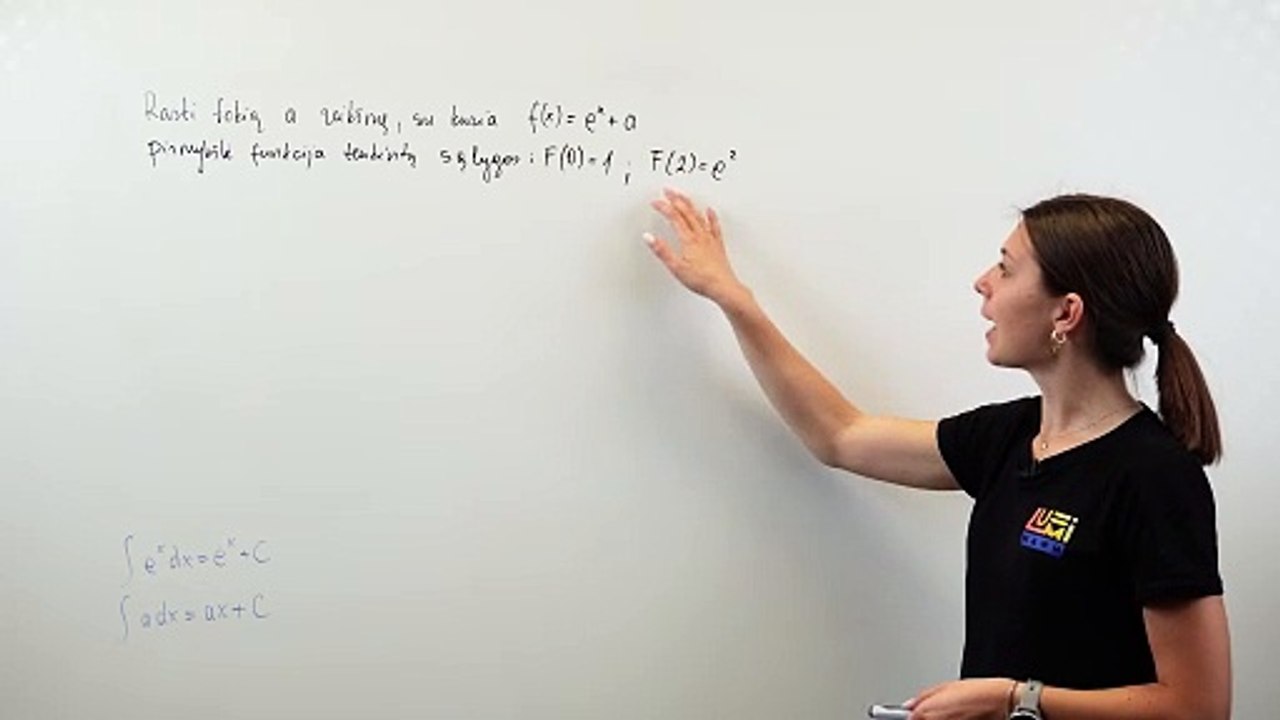 Rasti tokią a reikšmę, su kuria f(x) = eˣ + a
pirmykštė funkcija tenkintų sąlygas: F(0) = 1 ; F(2) = e²
∫ eˣ dx = eˣ + C
∫ a dx = ax + C
LUMi